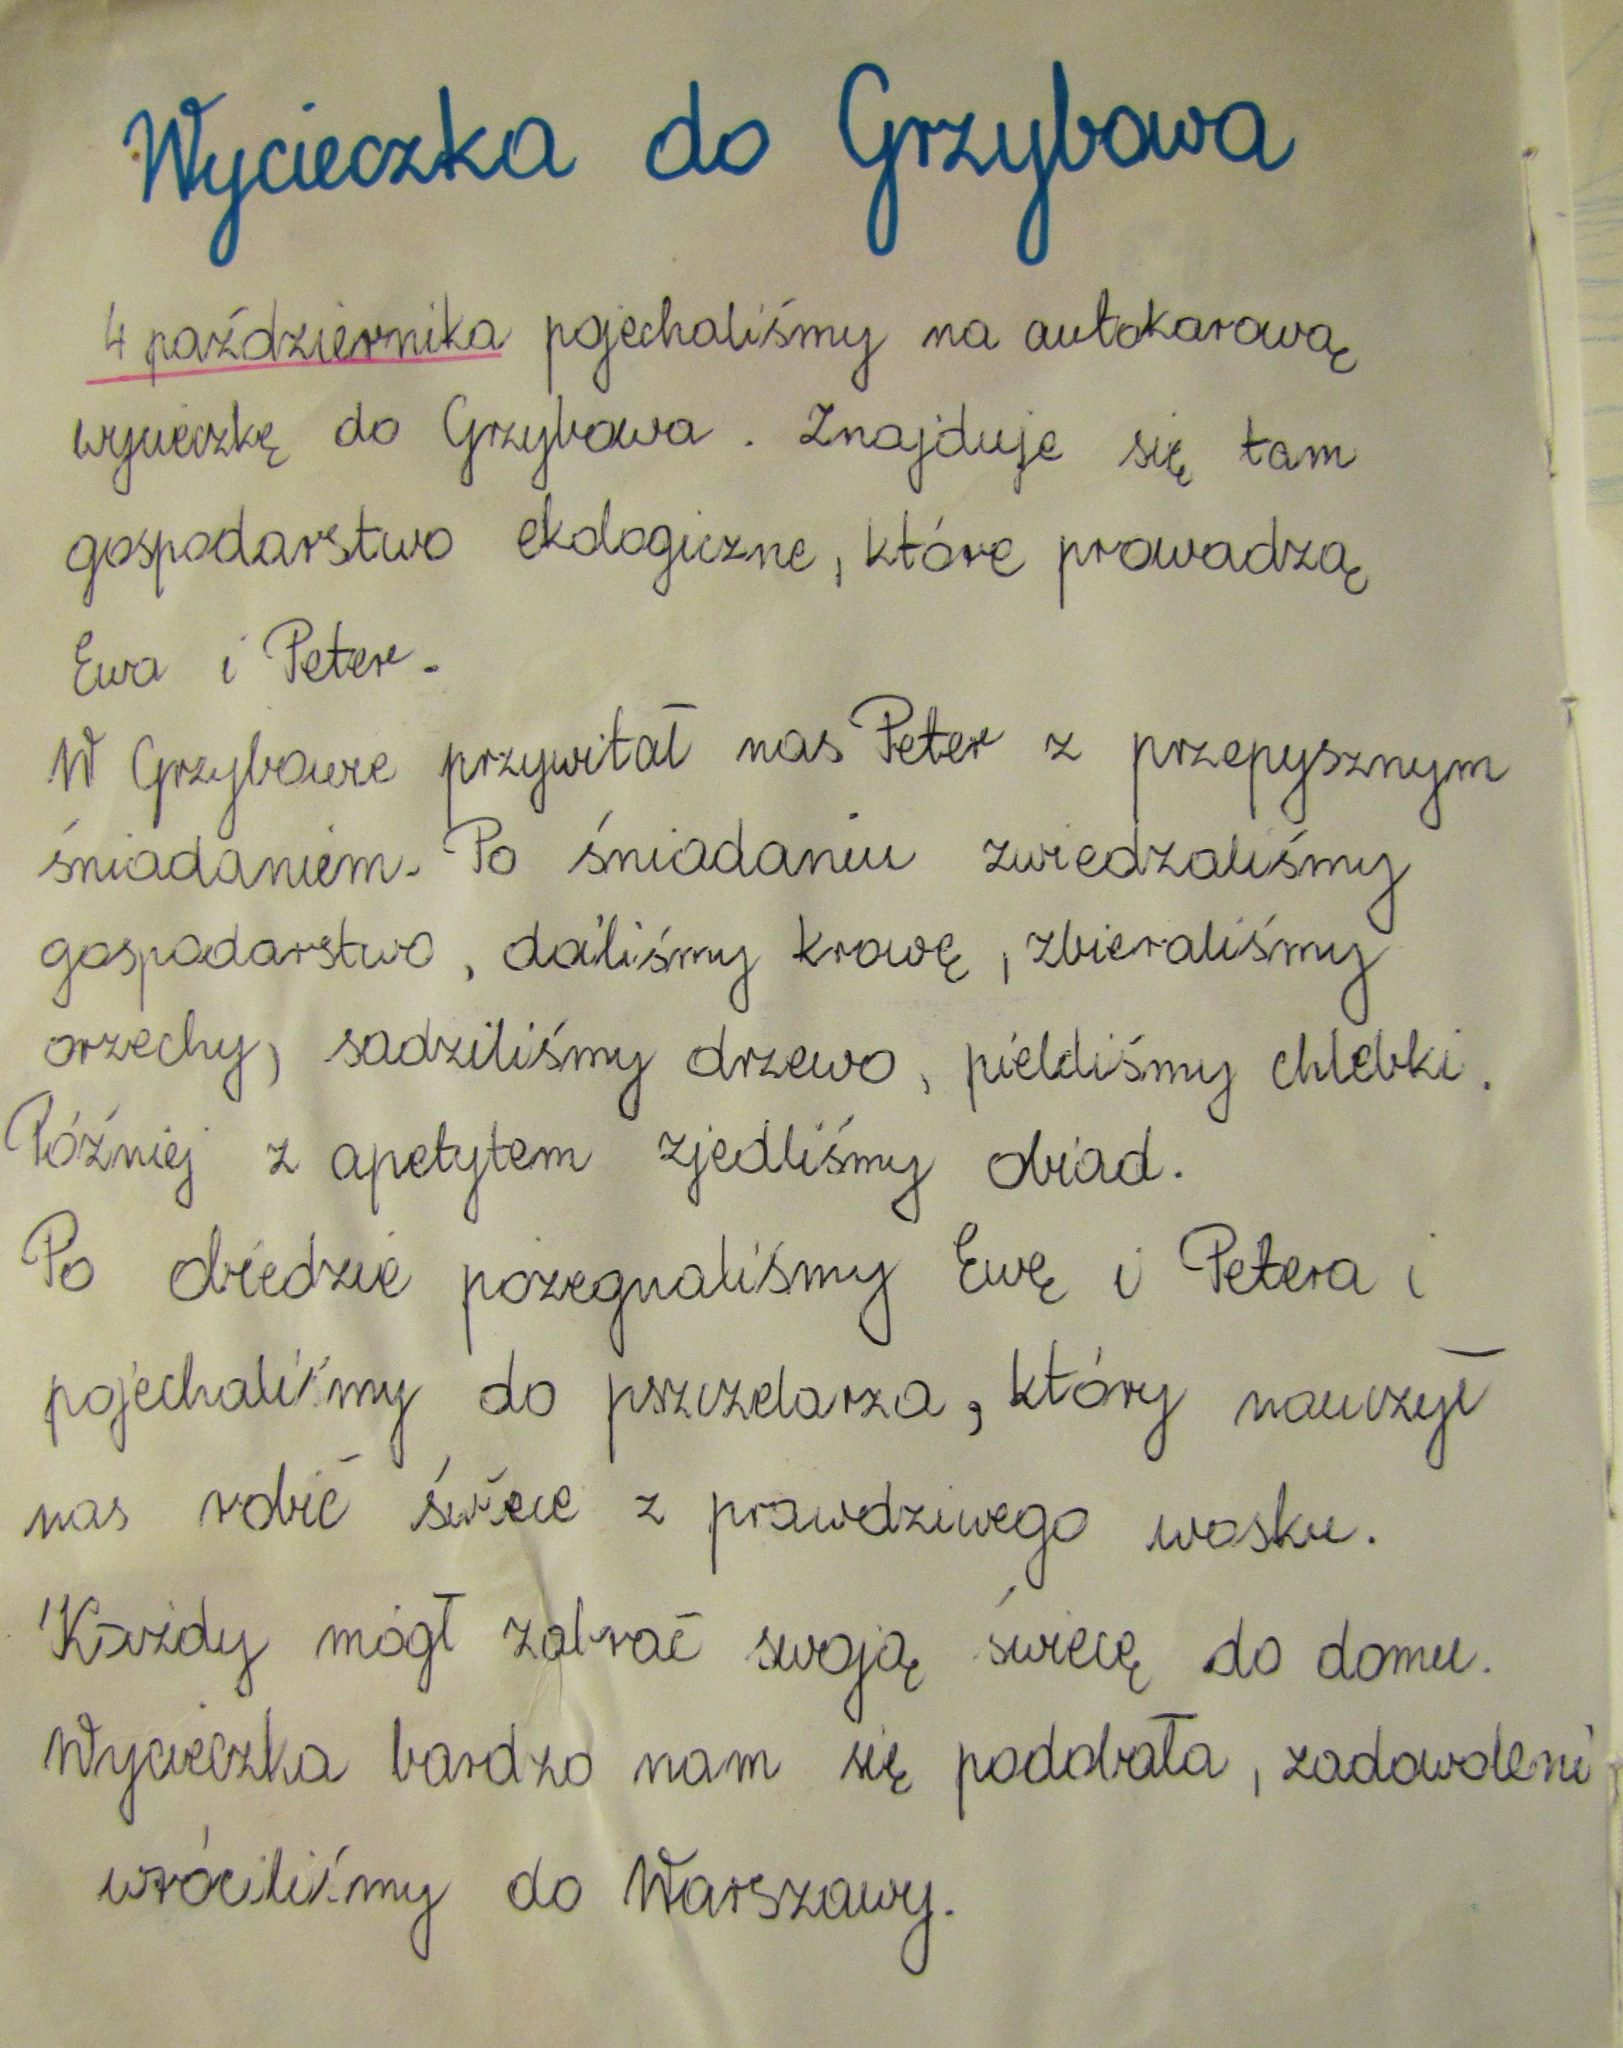 Wycieczka do Grzybowa
4 października pojechaliśmy na autokarową
wycieczkę do Grzybowa. Znajduje się tam
gospodarstwo ekologiczne, które prowadzą
Ewa i Peter.
W Grzybowie przywitał nas Peter z przepysznym
śniadaniem. Po śniadaniu zwiedzaliśmy
gospodarstwo, doiliśmy krowę, zbieraliśmy
orzechy, sadziliśmy drzewo, piekliśmy chlebki.
Później z apetytem zjedliśmy obiad.
Po obiedzie pożegnaliśmy Ewę i Petera i
pojechaliśmy do pszczelarza, który nauczył
nas robić świece z prawdziwego wosku.
Każdy mógł zabrać swoją świecę do domu.
Wycieczka bardzo nam się podobała, zadowoleni
wróciliśmy do Warszawy.